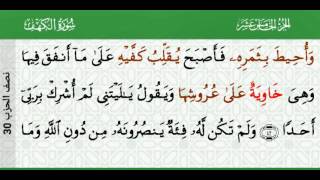 الجزء الخامس عشر
سورة الكهف
وَأُحِيطَ بِثَمَرِهِۦ فَأَصْبَحَ يُقَلِّبُ كَفَّيْهِ عَلَىٰ مَآ أَنفَقَ فِيهَا
وَهِىَ خَاوِيَةٌ عَلَىٰ عُرُوشِهَا وَيَقُولُ يَٰلَيْتَنِى لَمْ أُشْرِكْ بِرَبِّىٓ
أَحَدًا ۝٤٢ وَلَمْ تَكُن لَّهُۥ فِئَةٌ يَنصُرُونَهُۥ مِن دُونِ ٱللَّهِ وَمَا
نصف الحزب 30